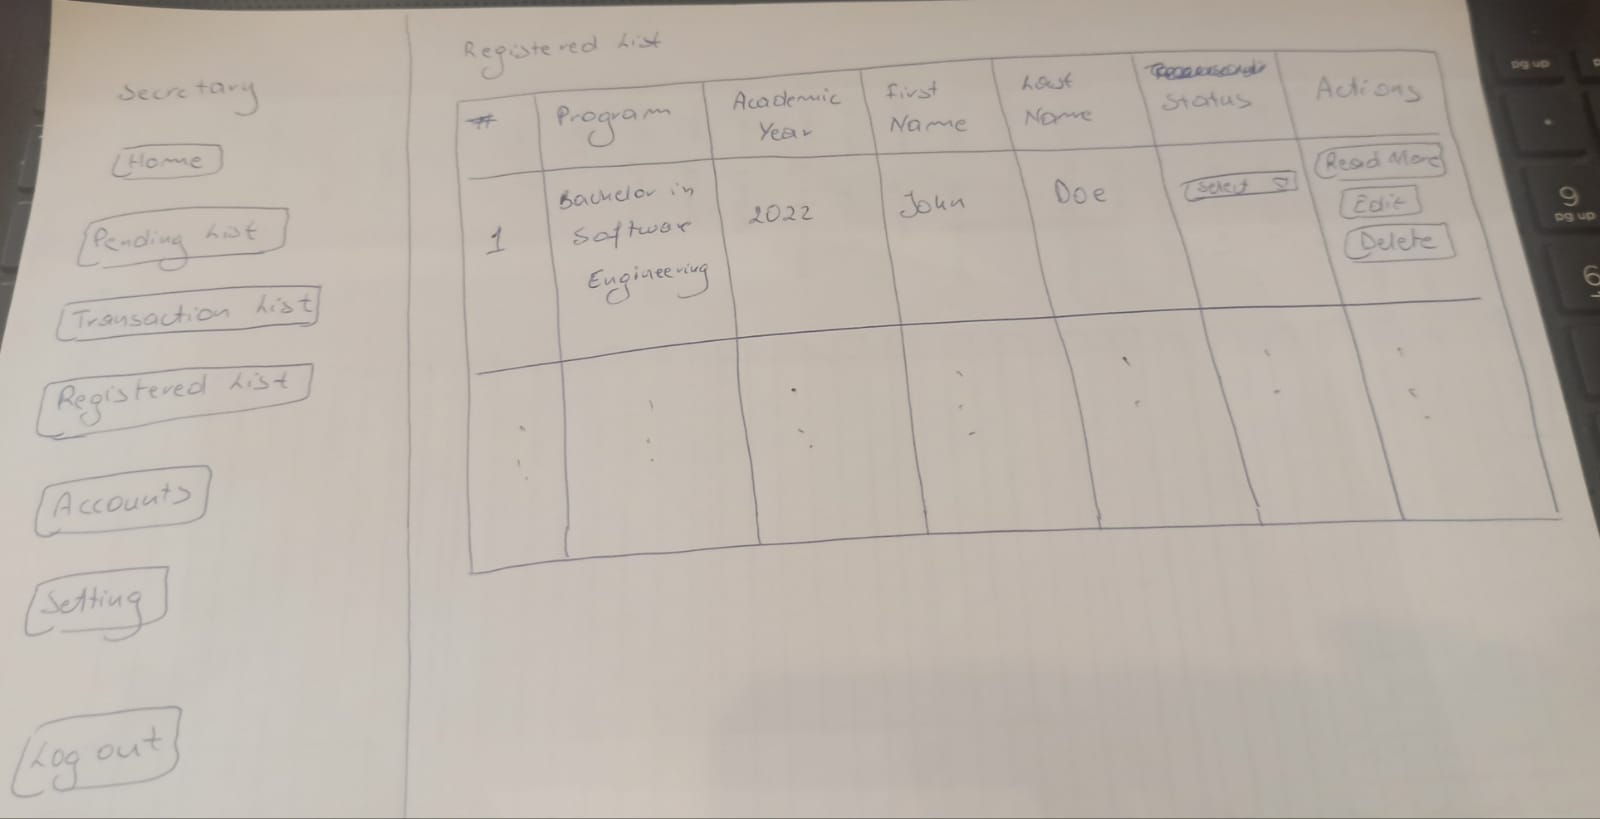 Secretary
Home
Pending List
Transaction List
Registered List
Accounts
Setting
Log out
Registered List
# Program Academic Year First Name Last Name Status Actions
1 Bachelor in Software Engineering 2022 John Doe Select Read More Edit Delete
pg up
9
pg up
6